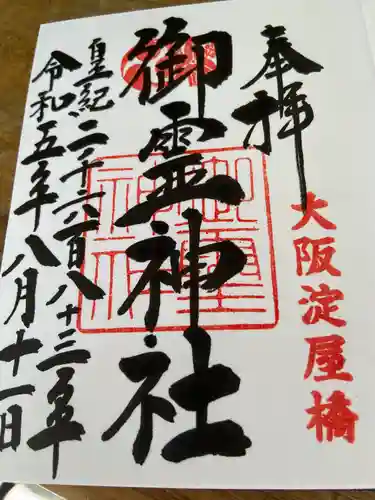 奉拝
大阪淀屋橋
御霊神社
皇紀二千六百八十三年
令和五年八月十一日
御霊神社